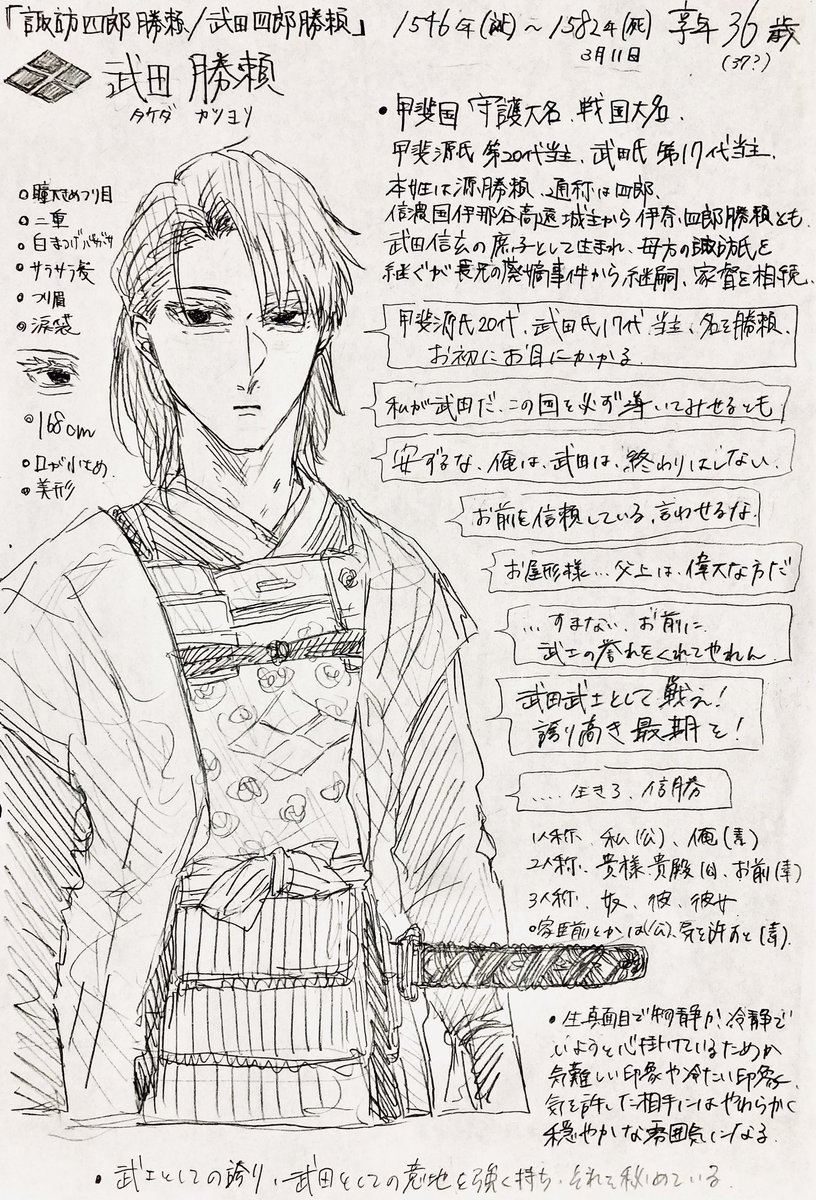 「諏訪四郎勝頼/武田四郎勝頼」 1546年(誕)～1582年(死) 享年36歳
3月11日 (37?)
武田 勝頼
タケダ カツヨリ
・甲斐国 守護大名、戦国大名、
甲斐源氏 第20代当主、武田氏 第17代当主、
本姓は源勝頼、通称は四郎、
信濃国伊那谷高遠城主から伊奈四郎勝頼とも、
武田信玄の庶子として生まれ、母方の諏訪氏を
継ぐが長兄の廃嫡事件から継嗣、家督を相続、
○瞳大きめつり目
○二重
○白まつげバサバサ
○サラサラ髪
○つり眉
○涙袋
○168cm
○口が小さめ、
○美形
甲斐源氏20代、武田氏17代、当主、名を勝頼、
お初にお目にかかる
私が武田だ、この国を必ず導いてみせるとも
案ずるな、俺は、武田は、終わりはしない、
お前を信頼している、言わせるな
お屋形様…父上は、偉大な方だ
…すまない、お前に
武士の誉れをくれてやれん
武田武士として戦え!
誇り高き最期を!
……生きろ、信勝
1人称、私(公)、俺(素)
2人称、貴様・貴殿(公)、お前(素)
3人称、奴、彼、彼女
○家臣前とかは(公)、気を許すと(素)
・生真面目で物静か、冷静で
いようと心掛けているためか
気難しい印象や冷たい印象、
気を許した相手にはやわらかく
穏やかな雰囲気になる
・武士としての誇り、武田としての意地を強く持ち、それを秘めている